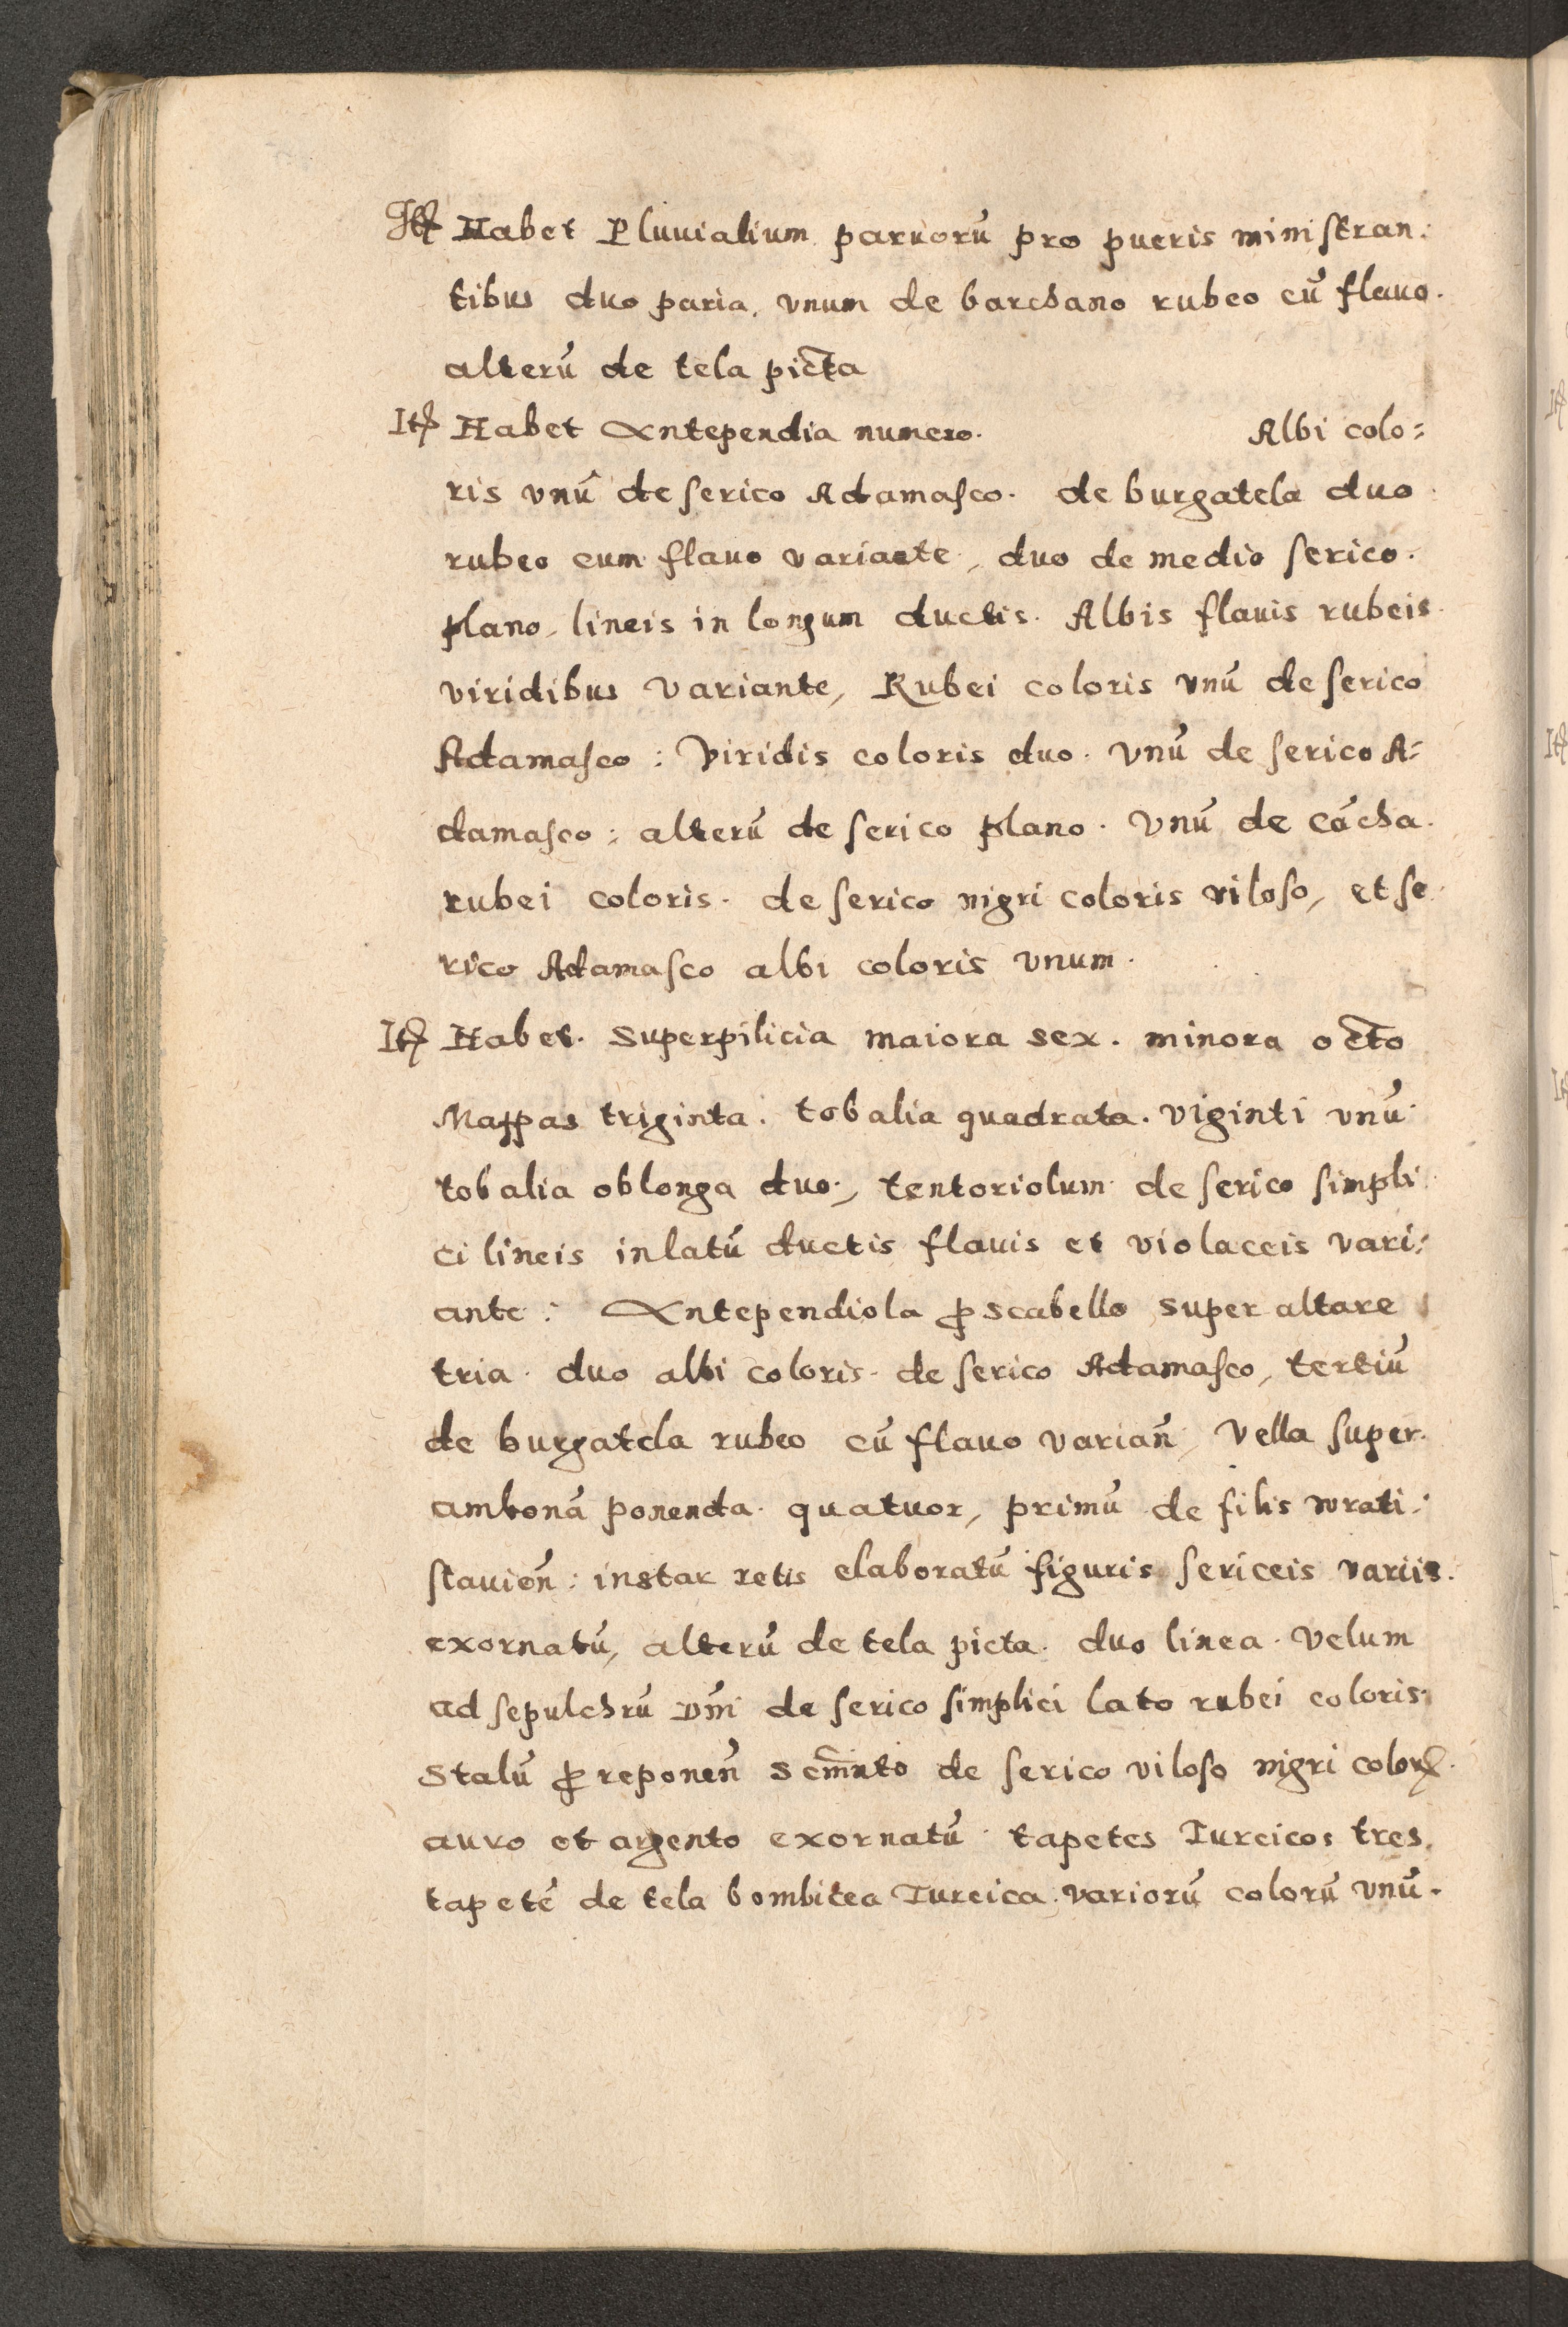 Itꝭ Habet Pluuialium paruorū pro pueris ministran:
tibus duo paria, vnum de barchano rubeo cū flauo.
alterū de tela picta
Itꝭ Habet Antependia numero. Albi colo:
ris vnū de serico Adamasco. de burgatela duo
rubeo cum flauo variante, duo de medio serico.
plano, lineis in longum ductis. Albis flauis rubeis
viridibus variante, Rubei coloris vnū de serico
Adamasco: Viridis coloris duo. Vnū de serico A:
damasco: alterū de serico plano. Vnū de cācha.
rubei coloris. de serico nigri coloris viloso, et se
rico Adamasco albi coloris vnum.
Itꝭ Habet. Superpilicia maiora sex. minora octo
Mappas triginta. tobalia quadrata. viginti vnū
tobalia oblonga duo, tentoriolum de serico simpli
ci lineis in latū ductis flauis et violaceis vari:
ante: Antependiola ꝓ scabello super altare
tria. duo albi coloris. de serico Adamasco, tertiū
de burgatela rubeo cū flauo varian̄, Vella super.
ambonā ponenda. quatuor, primū de filis wrati:
slauien̄: instar retis elaboratū figuris sericeis variis.
exornatū, alterū de tela picta. duo linea. Velum
ad sepulchrū Dn̄i de serico simplici lato rubei coloris
Stalū ꝓ reponen̄ Scm̄nto de serico viloso nigri colorꝭ.
auro et argento exornatū. tapetes Turcicos tres.
tapetē de tela bombicea Turcica. variorū colorū vnū.